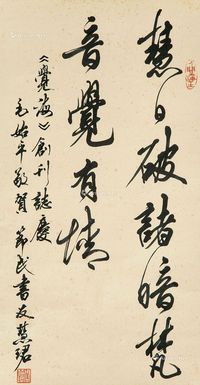 慧日破諸暗梵
音覺有情
《覺海》創刊誌慶
毛始平敬賀 節民書友慧珺